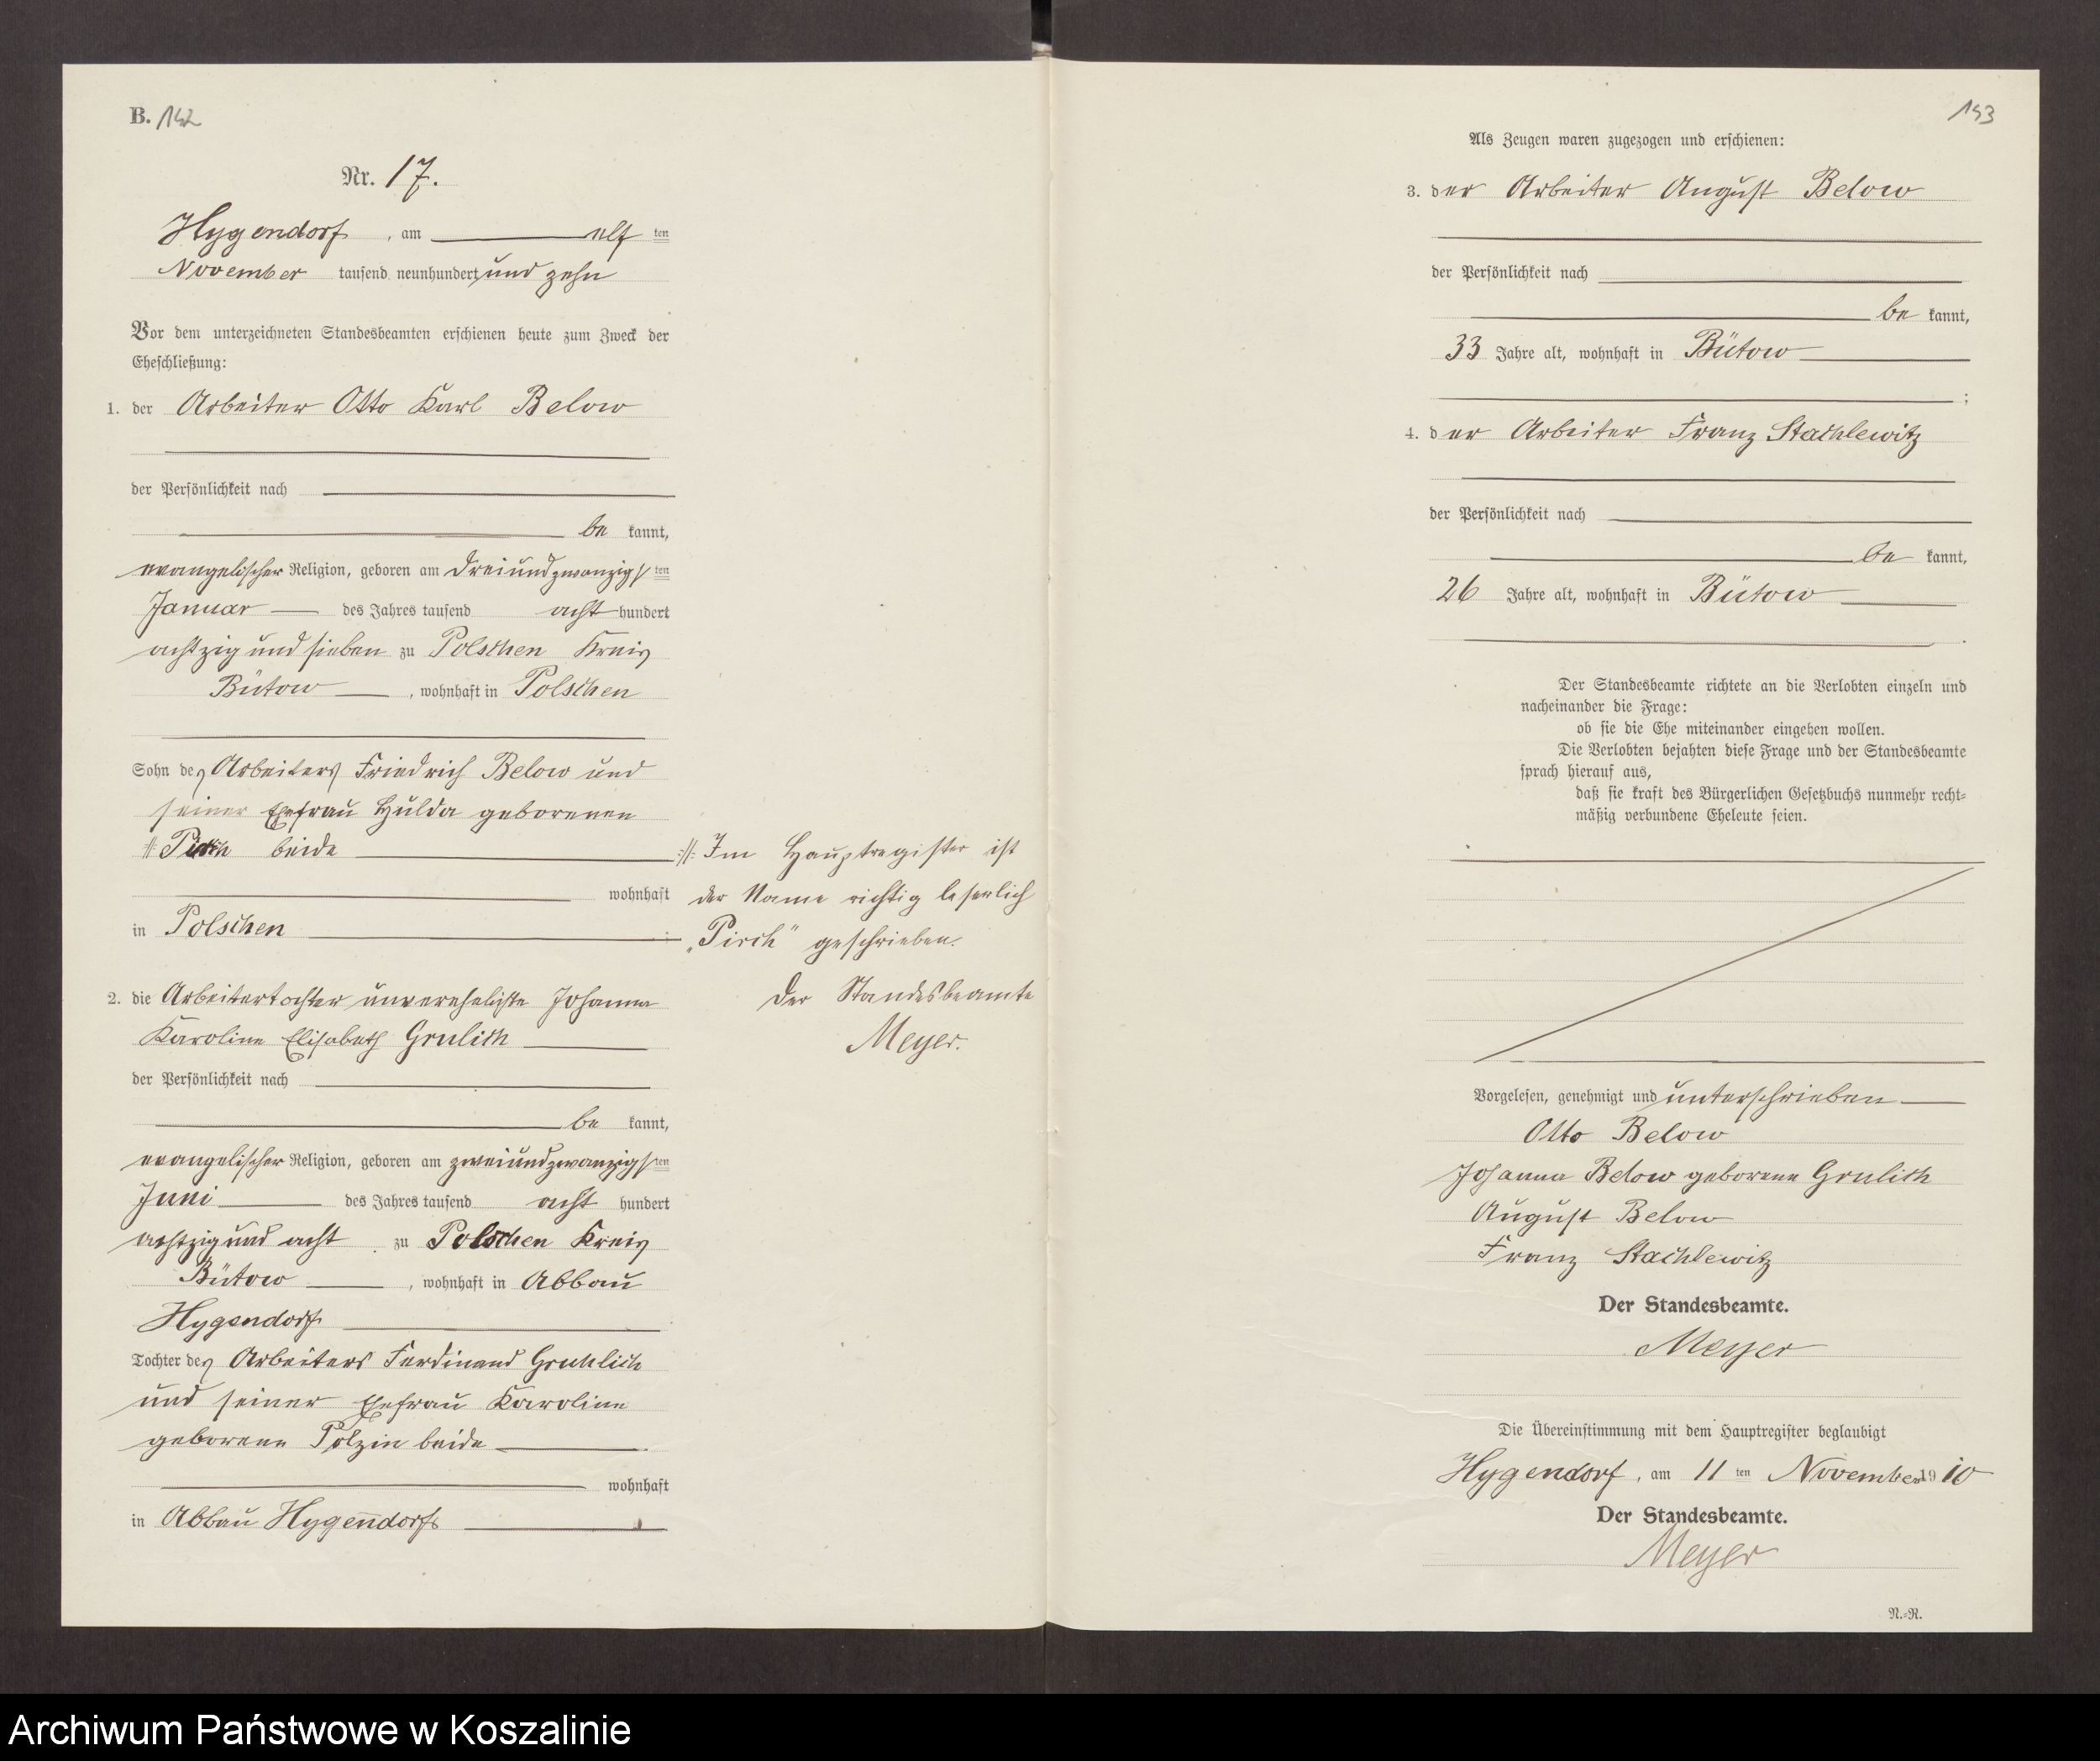 B. 142
Nr. 17.
Hygendorf, am elf ten
November tausend neunhundert und zehn
Vor dem unterzeichneten Standesbeamten erschienen heute zum Zweck der
Eheschließung:
1. der Arbeiter Otto Karl Below
der Persönlichkeit nach
be kannt,
evangelischer Religion, geboren am dreiundzwanzigsten
Januar des Jahres tausend acht hundert
achtzig und sieben zu Polschen Kreis
Bütow, wohnhaft in Polschen
Sohn des Arbeiters Friedrich Below und
seiner Ehefrau Hulda geborenen
Pirch beide
wohnhaft
in Polschen
:/: Im Hauptregister ist
der Name richtig leserlich
„Pirch“ geschrieben.
Der Standesbeamte
Meyer.
2. die Arbeitertochter unverehelichte Johanna
Karoline Elisabeth Grulich
der Persönlichkeit nach
be kannt,
evangelischer Religion, geboren am zweiundzwanzigsten
Juni des Jahres tausend acht hundert
achtzig und acht zu Polschen Kreis
Bütow, wohnhaft in Abbau
Hygendorf
Tochter des Arbeiters Ferdinand Gruhlich
und seiner Ehefrau Karoline
geborene Polzin beide
wohnhaft
in Abbau Hygendorf
153
Als Zeugen waren zugezogen und erschienen:
3. der Arbeiter August Below
der Persönlichkeit nach
be kannt,
33 Jahre alt, wohnhaft in Bütow
;
4. der Arbeiter Franz Stachlewitz
der Persönlichkeit nach
be kannt,
26 Jahre alt, wohnhaft in Bütow
.
Der Standesbeamte richtete an die Verlobten einzeln und
nacheinander die Frage:
ob sie die Ehe miteinander eingehen wollen.
Die Verlobten bejahten diese Frage und der Standesbeamte
sprach hierauf aus,
daß sie kraft des Bürgerlichen Gesetzbuchs nunmehr recht-
mäßig verbundene Eheleute seien.
Vorgelesen, genehmigt und unterschrieben
Otto Below
Johanna Below geborene Grulich
August Below
Franz Stachlewitz
Der Standesbeamte.
Meyer
Die Übereinstimmung mit dem Hauptregister beglaubigt
Hygendorf, am 11 ten November 1910
Der Standesbeamte.
Meyer
N.-R.
Archiwum Państwowe w Koszalinie